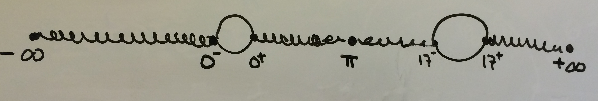 -∞ 0⁻ 0⁺ π 17⁻ 17⁺ +∞